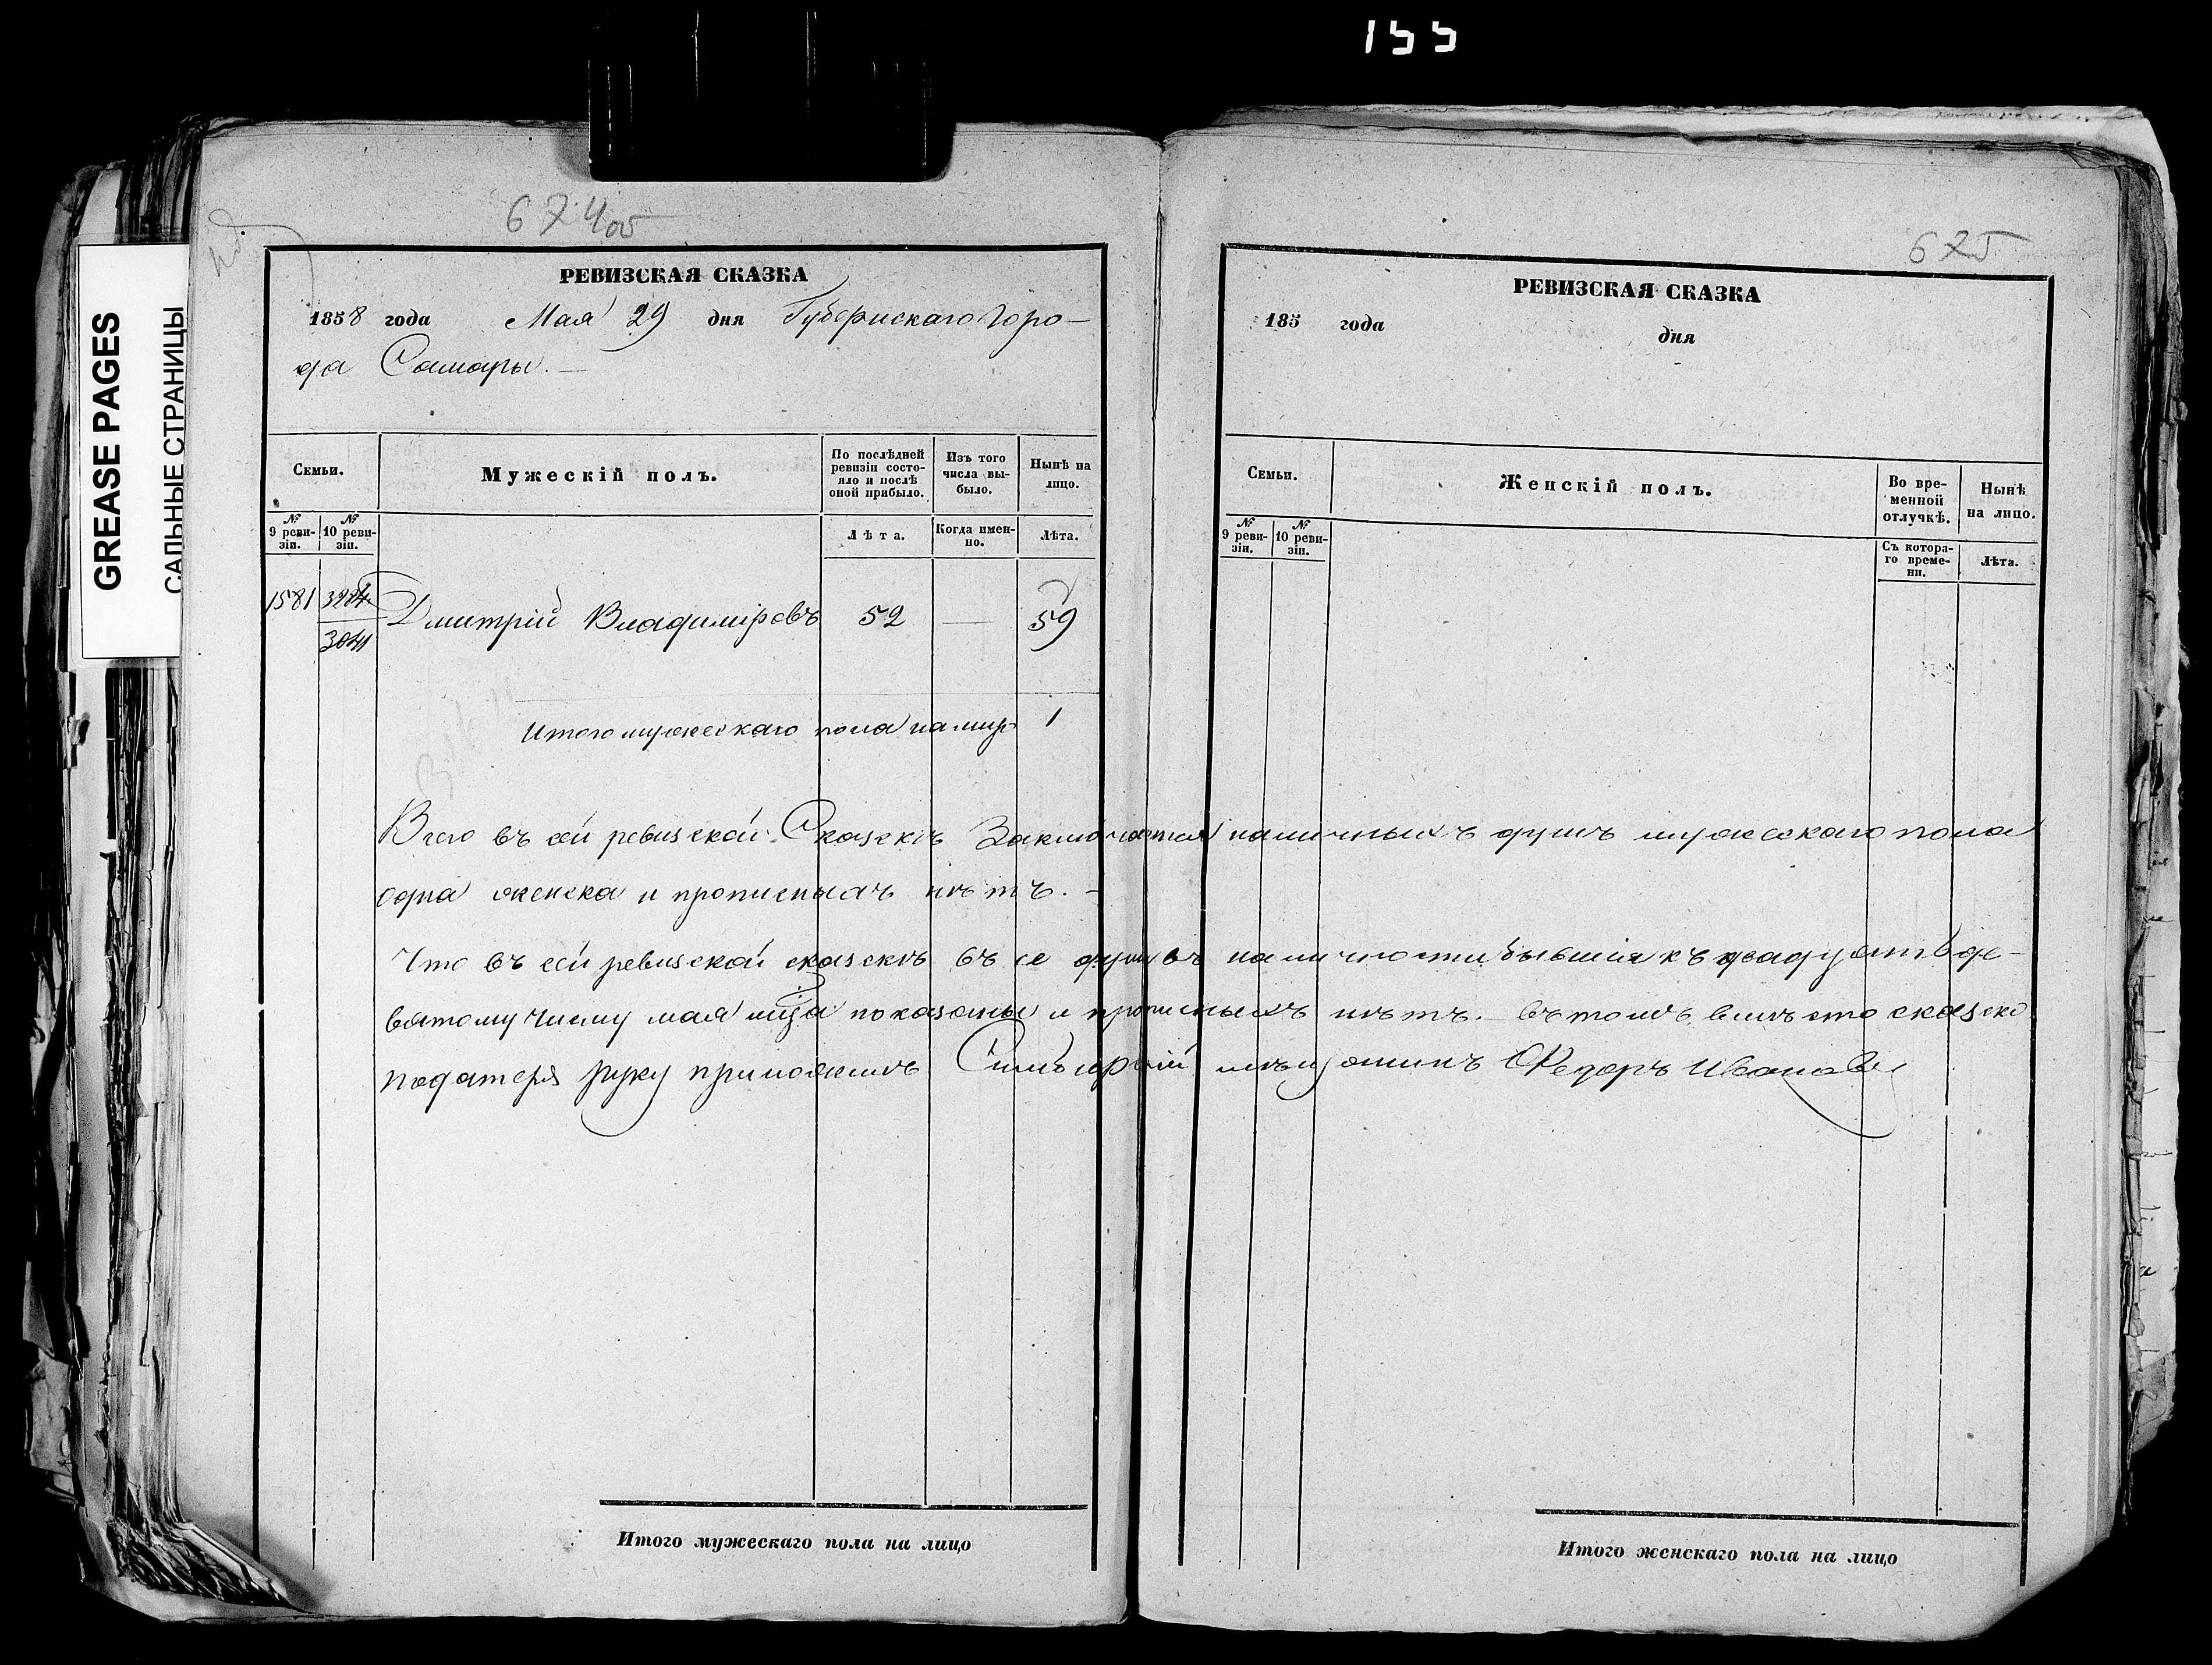 155
GREASE PAGES
САЛЬНЫЕ СТРАНИЦЫ
674 об
РЕВИЗСКАЯ СКАЗКА
1858 года Мая 29 дня Губернскаго горо-
да Самары. —
Семьи.
Мужескій полъ.
По послѣдней ревизіи состо-
яло и послѣ оной прибыло.
Изъ того числа вы-
было.
Нынѣ на лицо.
№ 9 реви-
зіи.
№ 10 реви-
зіи.
Лѣта.
Когда имен-
но.
Лѣта.
1581
Дмитрій Владиміровъ 52 — 59
Итого мужескаго пола на лицо 1
675
РЕВИЗСКАЯ СКАЗКА
185 года
дня
Семьи.
Женскій полъ.
Во вре-
менной отлучкѣ.
Нынѣ на лицо.
№ 9 реви-
зіи.
№ 10 реви-
зіи.
Съ котора-
го време-
ни.
Лѣта.
Всего въ сей ревизской Сказкѣ Заключается наличныхъ душъ мужескаго пола
одна женска и прописныхъ нѣтъ. —
Что въ сей ревизской сказкѣ въ се душъ въ наличности бывшія къ двадцать де-
вятому числу мая мца показаны и прописныхъ нѣтъ. — въ томъ вмѣсто сказко
подателя руку приложилъ мѣщанинъ Федоръ Ивановъ
Итого мужескаго пола на лицо
Итого женскаго пола на лицо